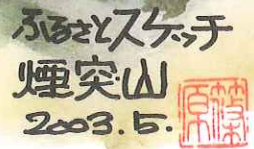 ふるさとスケッチ
煙突山
2003.5.
篠原